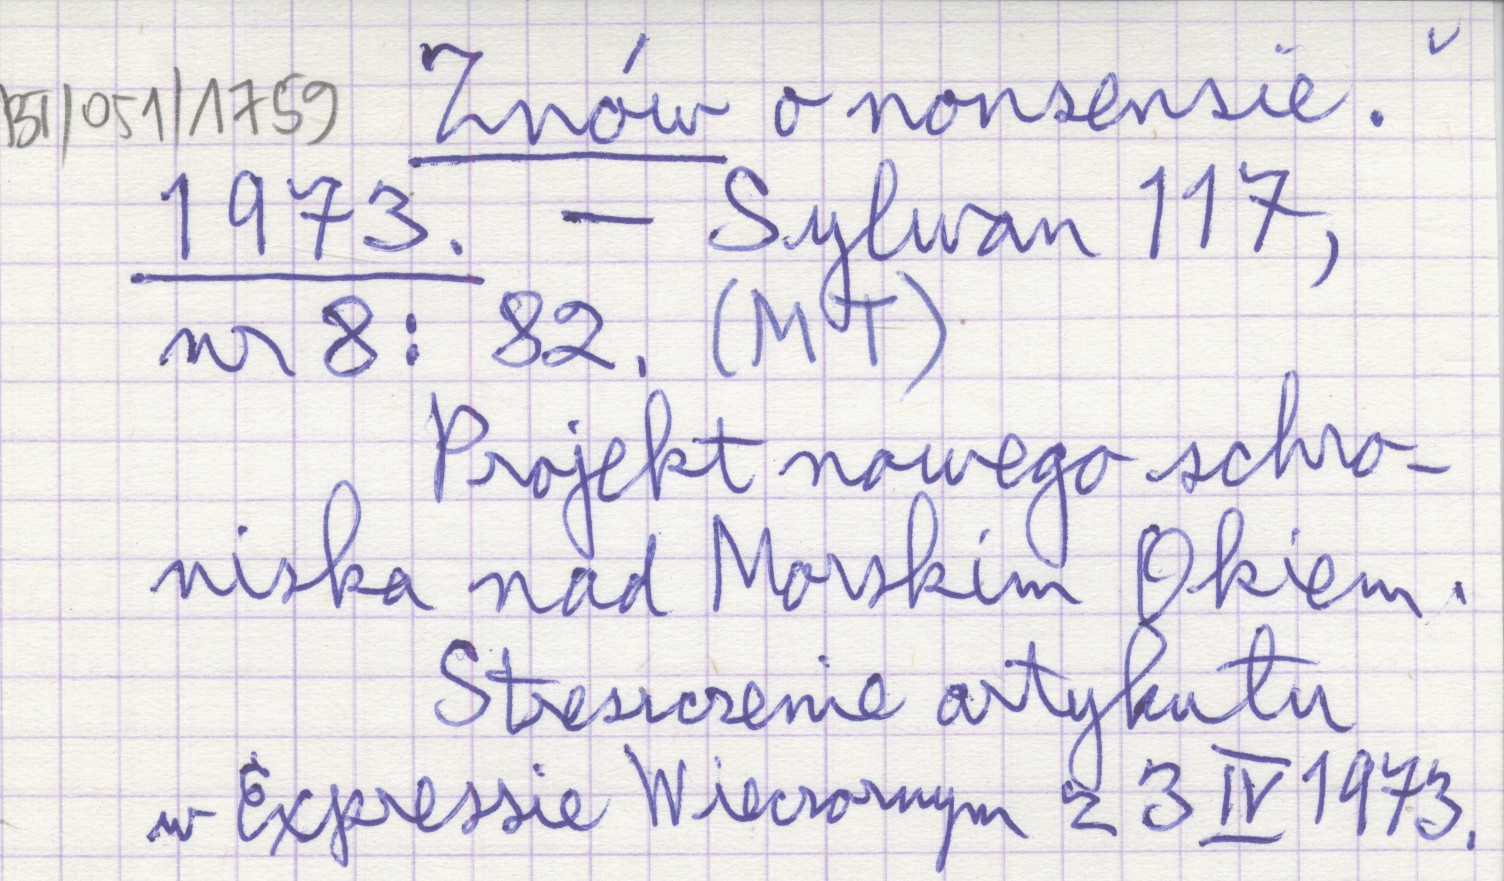 BT/051/1759 Znów o nonsensie.
1973. — Sylwan 117,
nr 8: 82. (MT)
Projekt nowego schro-
niska nad Morskim Okiem.
Streszczenie artykułu
w Expressie Wieczornym z 3 IV 1973.